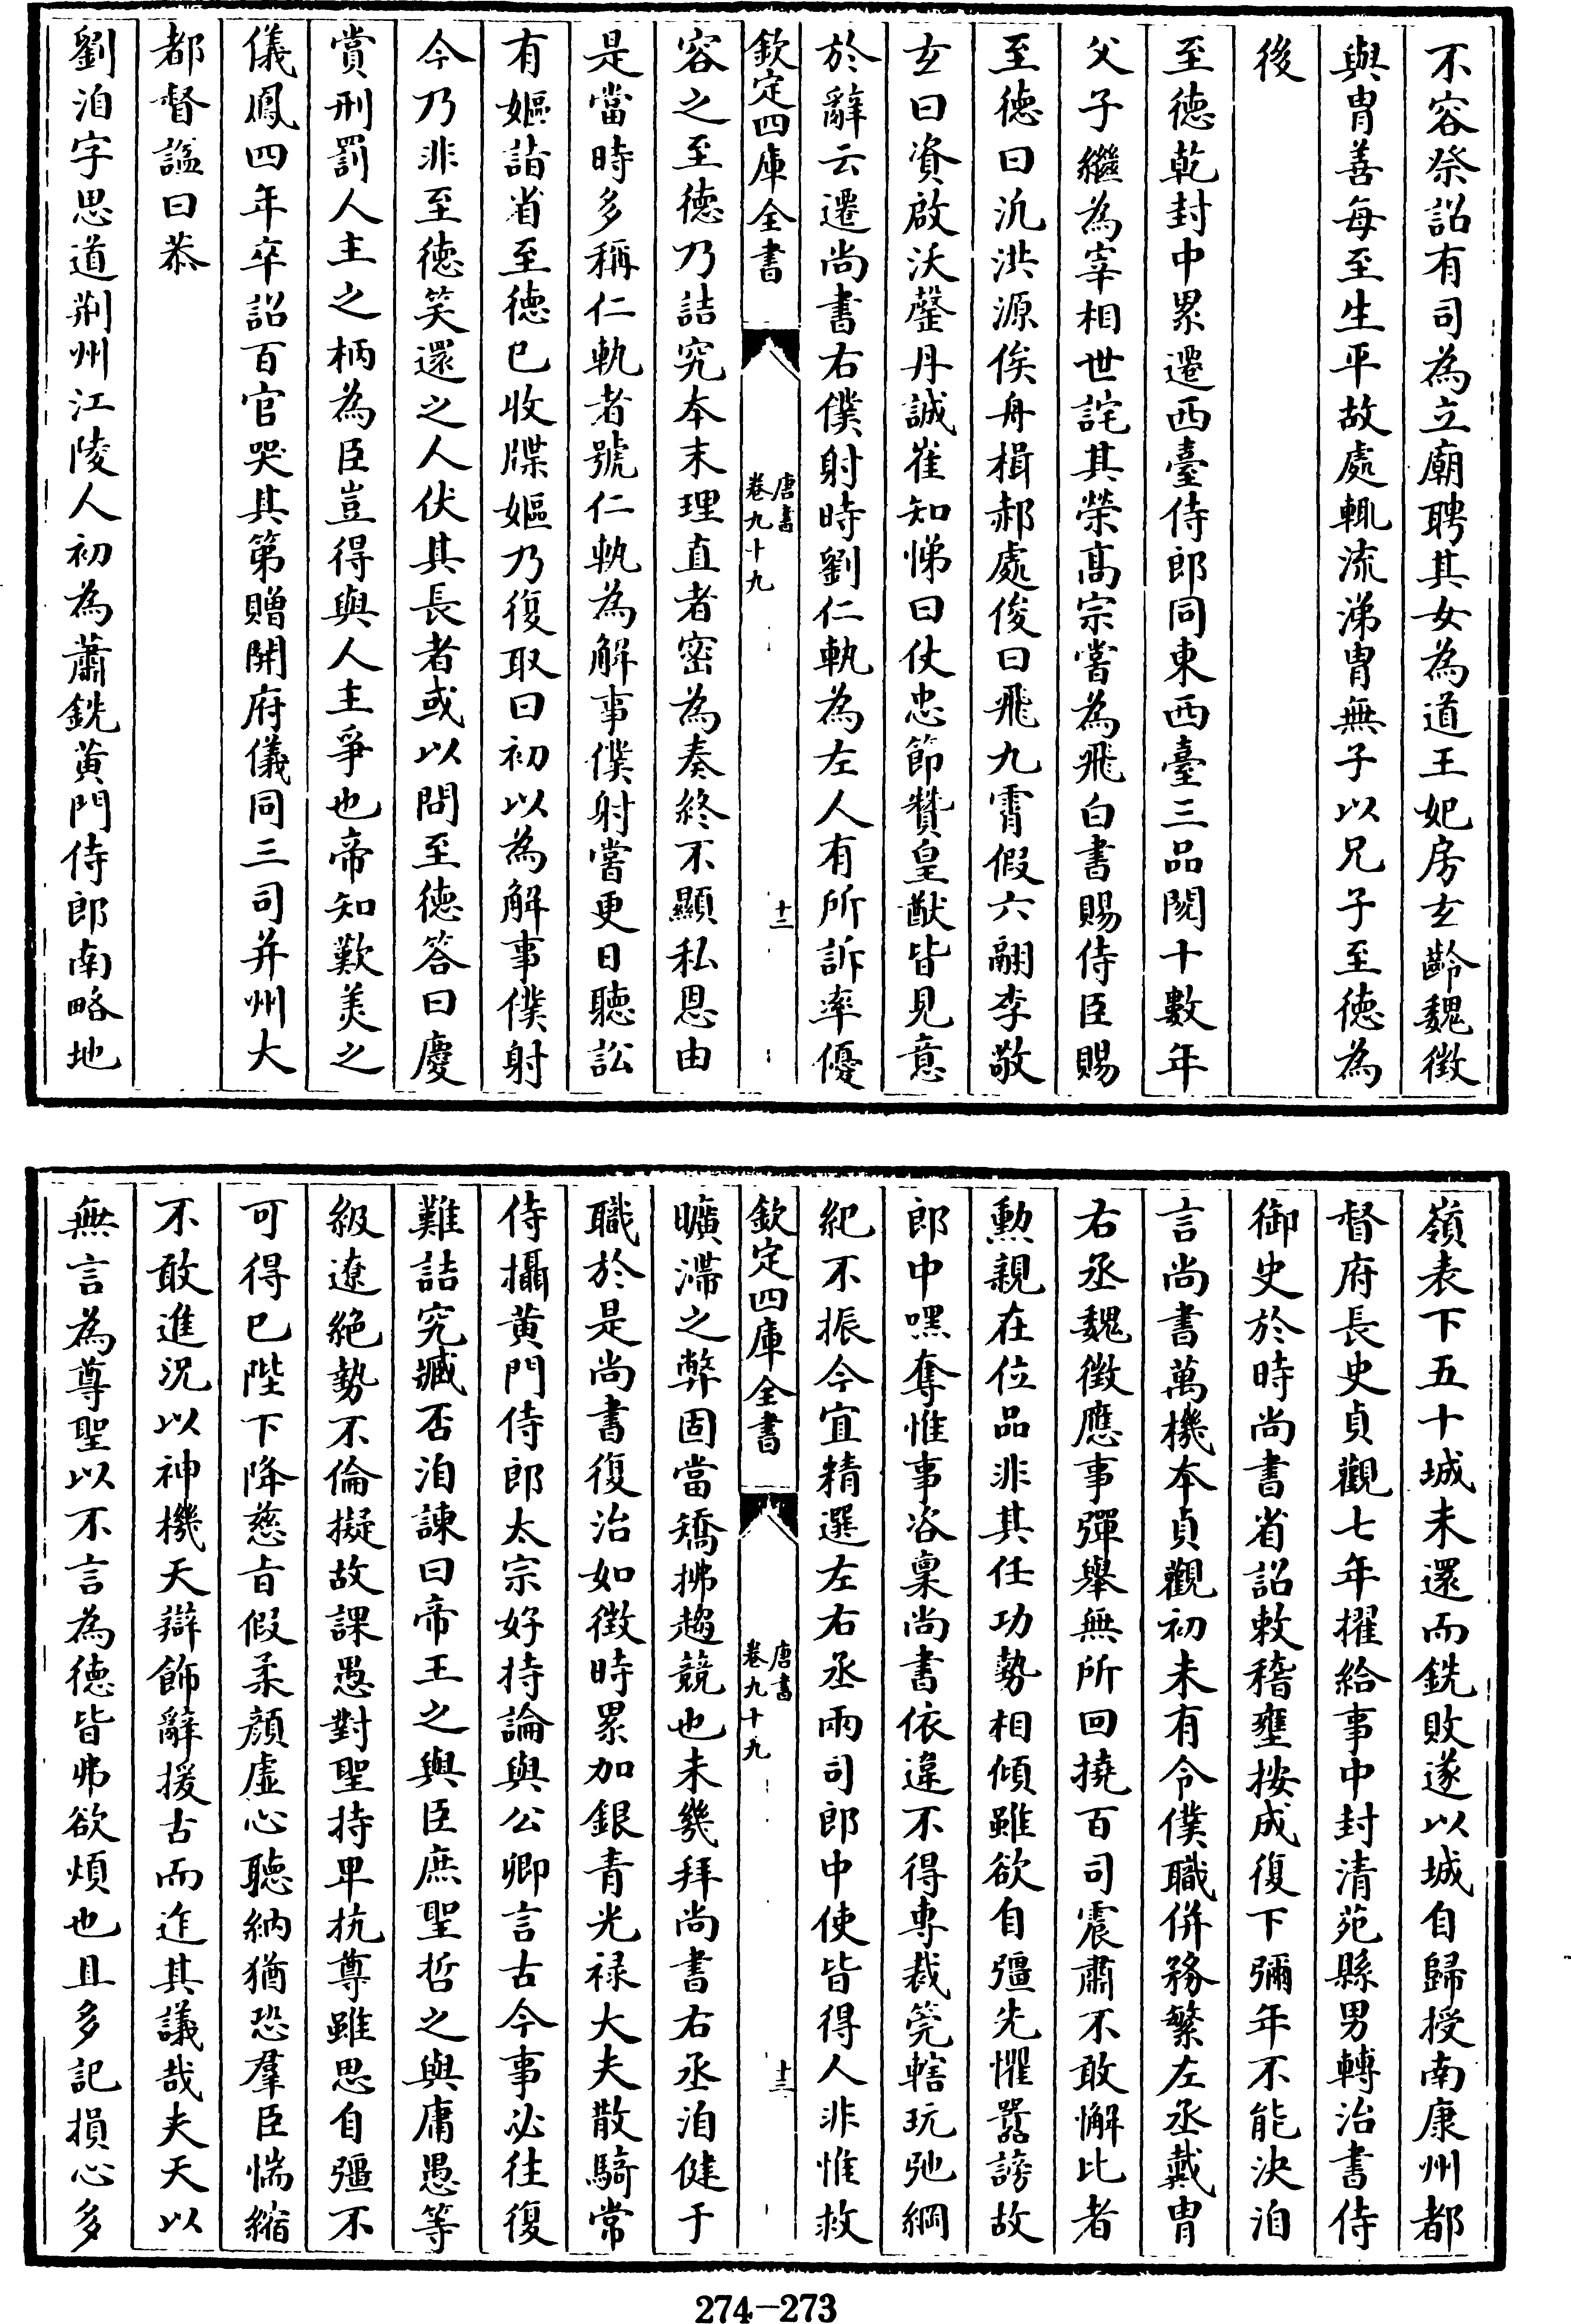 不容祭詔有司為立廟聘其女為道王妃房玄齡魏徵
與胄善每至生平故處輒流涕胄無子以兄子至徳為
後
至徳乾封中累遷西臺侍郎同東西臺三品閱十數年
父子繼為宰相世詫其榮髙宗嘗為飛白書賜侍臣賜
至徳曰汎洪源俟舟楫郝處俊曰飛九霄假六翮李敬
玄曰資啟沃罄丹誠崔知悌曰仗忠節贊皇猷皆見意
於辭云遷尚書右僕射時劉仁軌為左人有所訴率優
欽定四庫全書
唐書
卷九十九
十二
容之至徳乃詰究本末理直者密為奏終不顯私恩由
是當時多稱仁軌者號仁軌為解事僕射嘗更日聽訟
有嫗詣省至徳已收牒嫗乃復取曰初以為解事僕射
今乃非至徳笑還之人伏其長者或以問至徳答曰慶
賞刑罰人主之柄為臣豈得與人主爭也帝知歎美之
儀鳳四年卒詔百官哭其第贈開府儀同三司并州大
都督諡曰恭
劉洎字思道荆州江陵人初為蕭銑黄門侍郎南略地
嶺表下五十城未還而銑敗遂以城自歸授南康州都
督府長史貞觀七年擢給事中封清苑縣男轉治書侍
御史於時尚書省詔敕稽壅按成復下彌年不能決洎
言尚書萬機本貞觀初未有令僕職併務繁左丞戴胄
右丞魏徵應事彈舉無所回撓百司震肅不敢懈比者
勲親在位品非其任功勢相傾雖欲自彊先懼嚣謗故
郎中嘿奪惟事咨稟尚書依違不得專裁筦轄玩弛綱
紀不振今宜精選左右丞兩司郎中使皆得人非惟救
欽定四庫全書
唐書
卷九十九
十三
曠滯之弊固當矯拂趨競也未幾拜尚書右丞洎健于
職於是尚書復治如徵時累加銀青光禄大夫散騎常
侍攝黄門侍郎太宗好持論與公卿言古今事必往復
難詰究臧否洎諫曰帝王之與臣庶聖哲之與庸愚等
級遼絶勢不倫擬故課愚對聖持卑抗尊雖思自彊不
可得已陛下降慈旨假柔顔虛心聽納猶恐羣臣惴縮
不敢進況以神機天辯飾辭援古而迮其議哉夫天以
無言為尊聖以不言為徳皆弗欲煩也且多記損心多
274—273